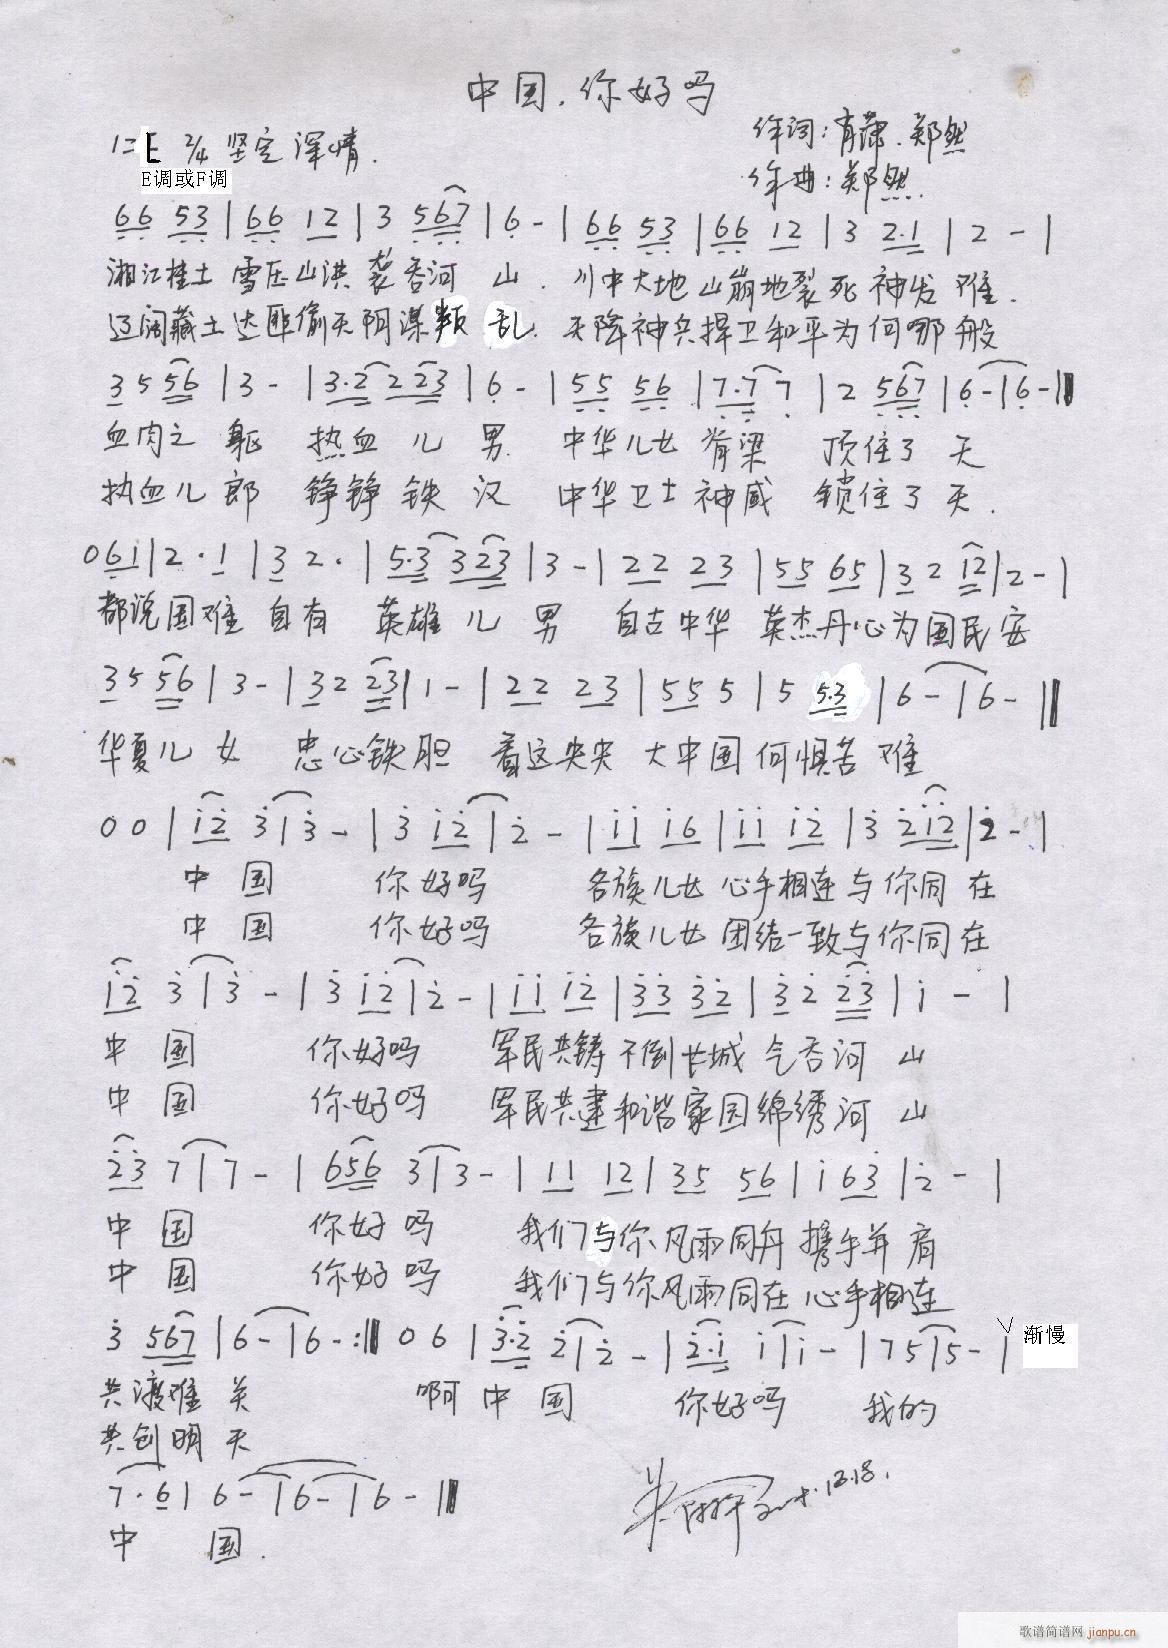 中国.你好吗
1=E 2/4 坚定 深情.
E调或F调
作词:肖萧.郑然
作曲:郑然.
66 53 | 66 12 | 3 567 | 6 - | 66 53 | 66 12 | 3 2·1 | 2 - |
湘江桂土 雪压山洪 袭吞河 山. 川中大地 山崩地裂 死神发难.
辽阔藏土 达匪偷天阴谋叛乱. 天降神兵捍卫和平为何哪般
35 56 | 3 - | 3·2 2 23 | 6 - | 55 56 | 7·7 7 | 2 567 | 6 - | 6 - ‖
血肉之 躯 热血 儿 男. 中华儿女 脊梁 顶住了 天
热血儿 郎 铮铮 铁 汉 中华卫士 神威 锁住了 天.
0 61 | 2·1 | 3 2· | 5·3 3 23 | 3 - | 22 23 | 55 65 | 3 2 12 | 2 - |
都说国难 自有 英雄 儿 男 自古中华 英杰丹心为国民安
35 56 | 3 - | 32 23 | 1 - | 22 23 | 55 5 | 5 5·3 | 6 - | 6 - ‖
华夏儿 女 忠心铁胆 看这央央 大中国何惧苦难
0 0 | i2 3 | 3 - | 3 i2 | 2 - | ii i6 | ii i2 | 3 2i2 | 2 - |
中 国 你好吗 各族儿女 心手相连与你同在
中 国 你好吗 各族儿女 团结一致与你同在
i2 3 | 3 - | 3 i2 | 2 - | ii i2 | 33 32 | 3 2 23 | i - |
中 国 你好吗 军民共铸 不倒长城 气吞河 山
中 国 你好吗 军民共建和谐家园绵绣河 山
23 7 | 7 - | 656 3 | 3 - | 11 12 | 35 56 | i 63 | 2 - |
中 国 你好吗 我们与你风雨同舟 携手并肩
中 国 你好吗 我们与你风雨同在心手相连
3 567 | 6 - | 6 - :‖ 0 6 | 3·2 2 | 2 - | 2·i i | i - | 7 5 | 5 - | V 渐慢
共渡难 关 啊 中 国 你好吗 我的
共创明 天
7·6 | 6 - | 6 - | 6 - ‖
中 国.
12.18.
歌谱简谱网 jianpu.cn